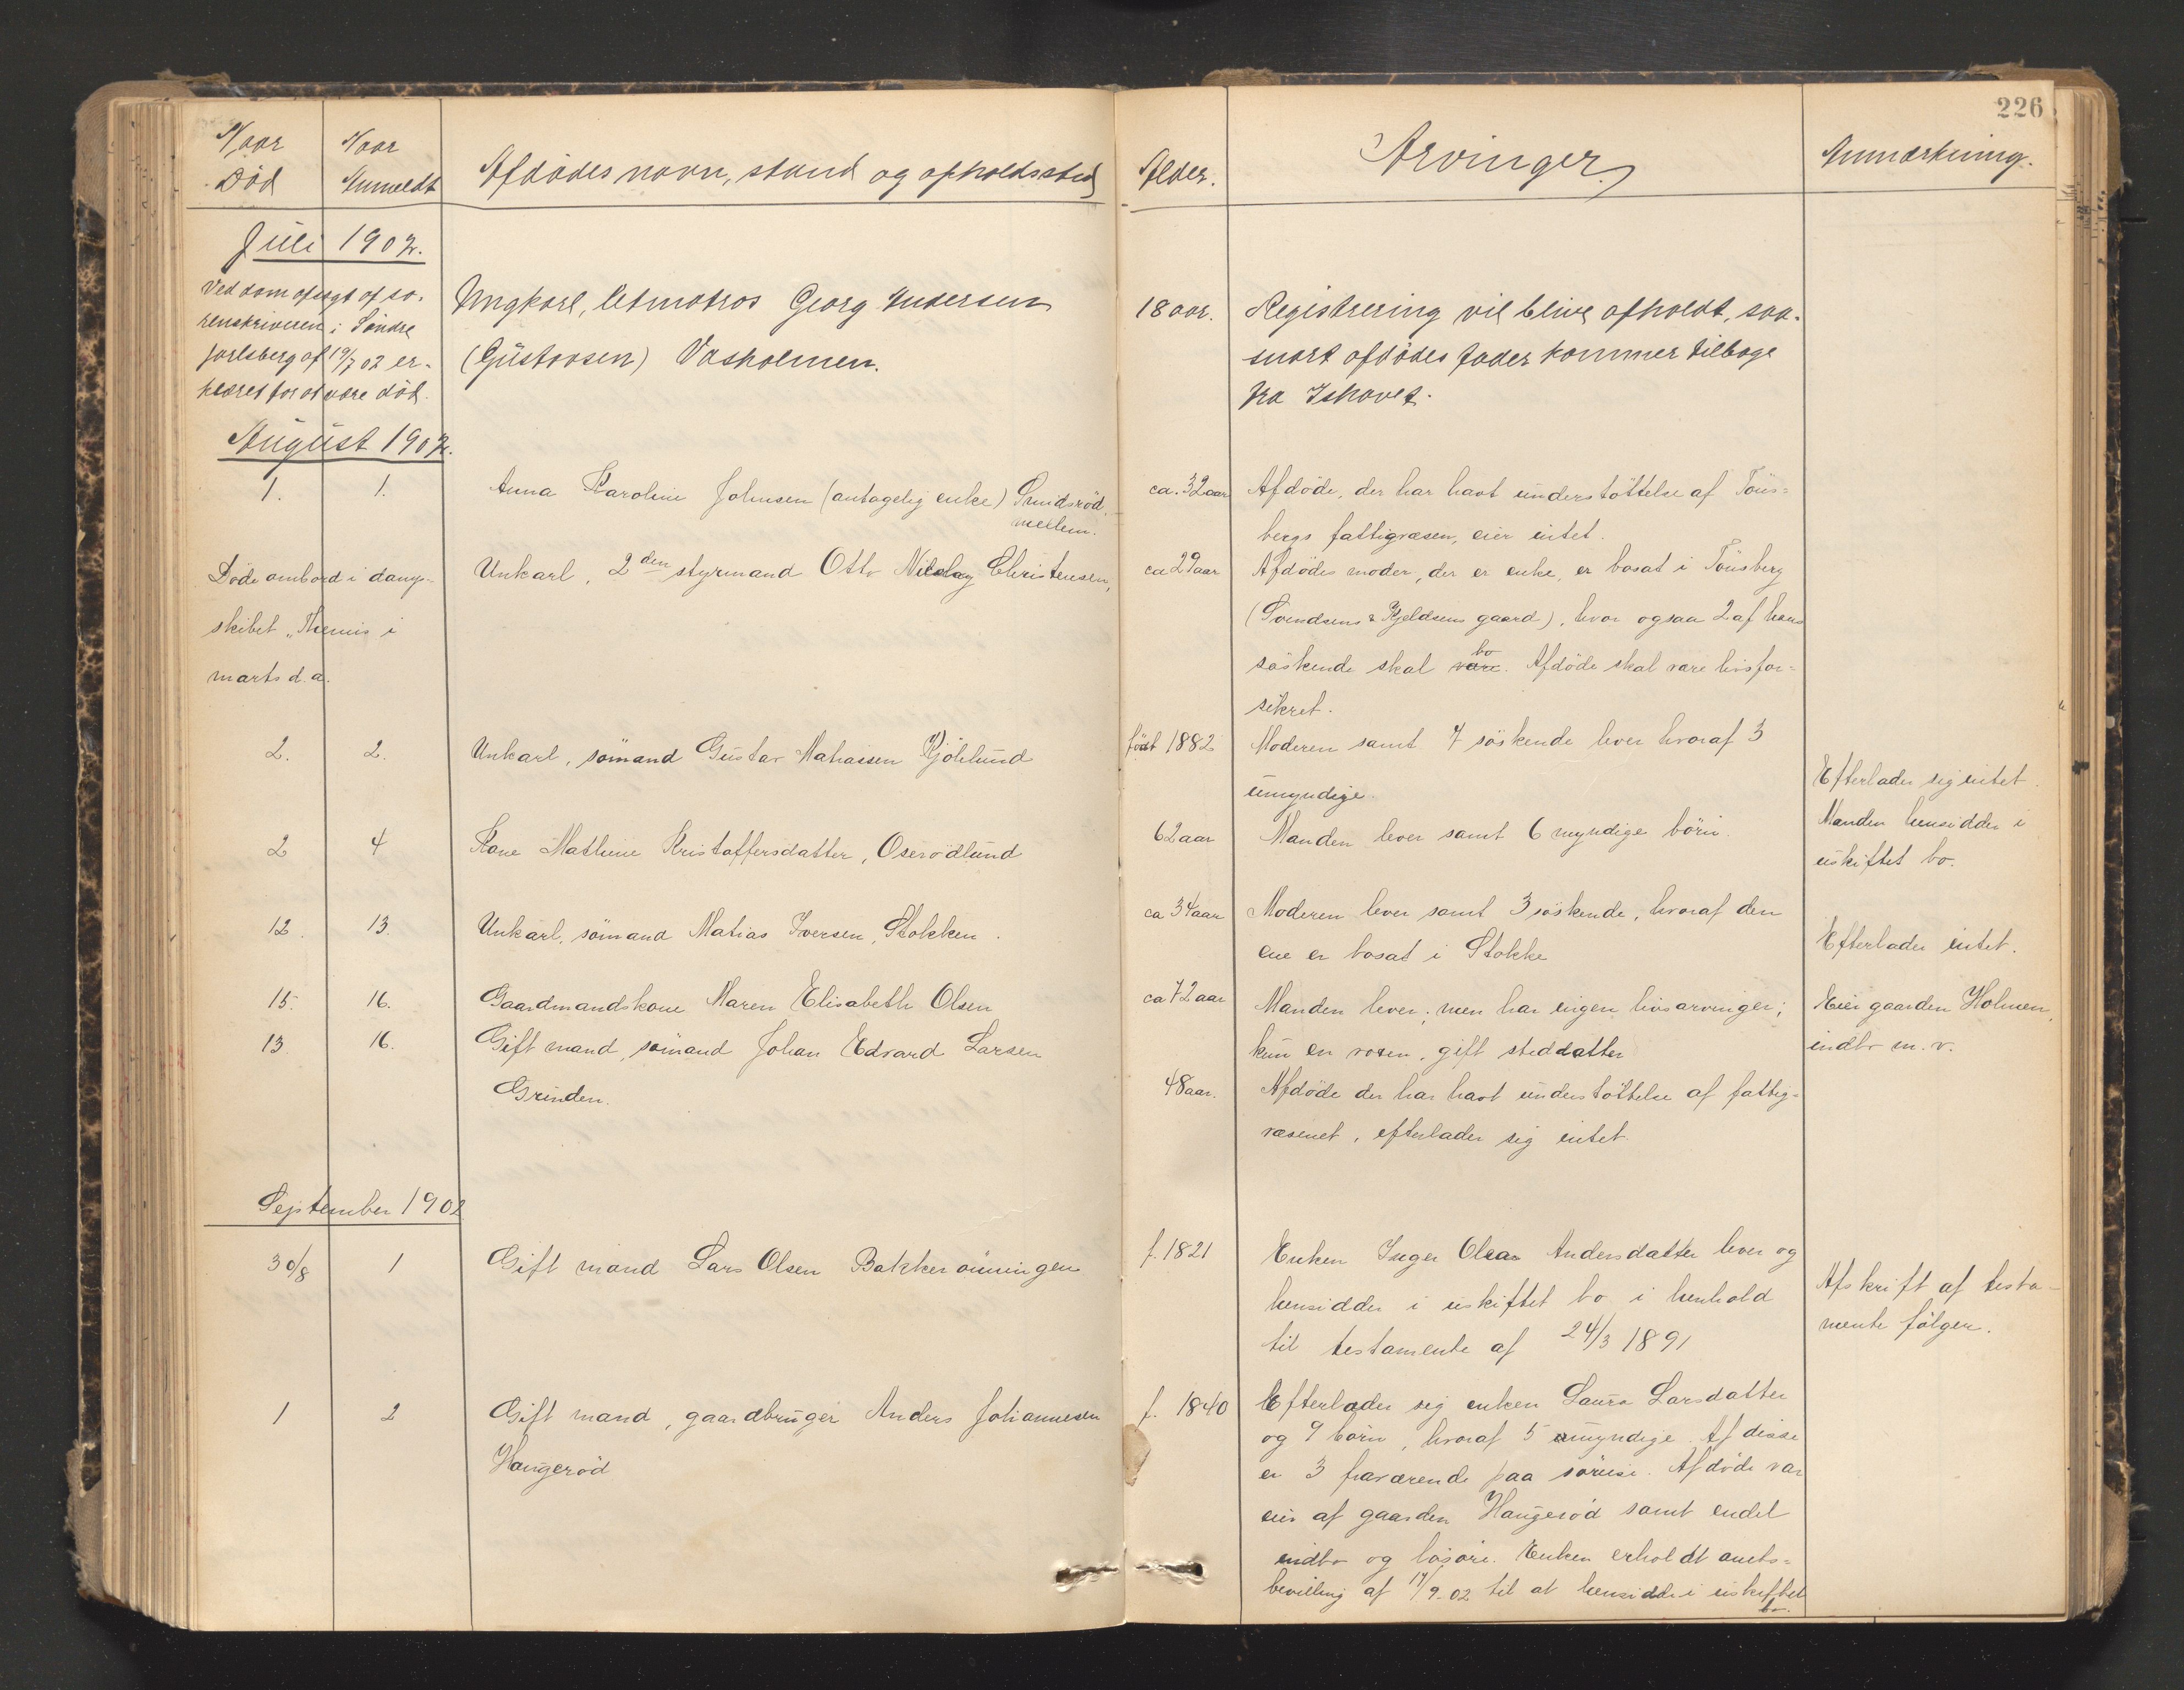 226
Naar Død
Naar Anmeldt
Afdødes navn, stand og opholdssted
Alder.
Arvinger
Anmærkning.
Juli 1902.
Ved dom afsagt af so-
renskriveren i Søndre
Jarlsberg af 19/7 02 er-
klæret for at være død.
Ungkarl, letmatros Georg Andersen
(Gustavsen) Vasholmen.
18 aar.
Registrering vil blive afholdt, saa-
snart afdødes fader kommer tilbage
fra Ishavet.
August 1902.
1.
1.
Anna Karoline Johnsen (antagelig enke) Sundsröd,
mellem.
ca. 32 aar
Afdöde, der har havt understöttelse af Töns-
bergs fattigvæsen, eier intet.
Döde ombord i damp-
skibet "Themis i
marts d.a.
Unkarl, 2den styrmand Otto Nicolay Christensen,
ca 29 aar
Afdödes moder, der er enke, er bosat i Tönsberg
(Svendsens & Kjeldsens gaard), hvor ogsaa 2 af hans
söskende skal være bo. Afdöde skal være livsfor-
sikret.
2.
2.
Unkarl, sömand Gustav Mathiassen Kjölelund
födt 1882
Moderen samt 7 söskende lever hvoraf 3
umyndige.
Efterlader sig intet.
2
4
Kone Mathine Kristoffersdatter, Oserödlund
62 aar
Manden lever samt 6 myndige börn.
Manden hensidder i
uskiftet bo.
12.
13.
Unkarl, sömand Matias Iversen, Stokken.
ca 34 aar
Moderen lever samt 3 söskende, hvoraf den
ene er bosat i Stokke
Efterlader intet.
15.
16.
Gaardmandskone Maren Elisabeth Olsen
ca 72 aar
Manden lever; men har ingen livsarvinger;
kun en voxen, gift steddatter
Eier gaarden Holmen,
indbo m.v.
13.
16.
Gift mand, sömand Johan Edvard Larsen
Grinden.
48 aar.
Afdöde der har havt understöttelse af fattig-
væsenet, efterlader sig intet.
September 1902
30/8
1
Gift mand Lars Olsen Bakkerönningen
f. 1821
Enken Inger Olea Andersdatter lever og
hensidder i uskiftet bo i henhold
til testamente af 24/3 1891
Afskrift af testa-
mente fölger.
1
2
Gift mand, gaardbruger Anders Johannesen
Haugeröd
f. 1840
Efterlader sig enken Laura Larsdatter
og 9 börn, hvoraf 5 umyndige. Af disse
er 3 fraværende paa söreise. Afdöde var
eier af gaarden Haugeröd samt endel
indbo og lösöre. Enken erholdt amts-
bevilling af 17/9-02 til at hensidde i uskiftet
bo.